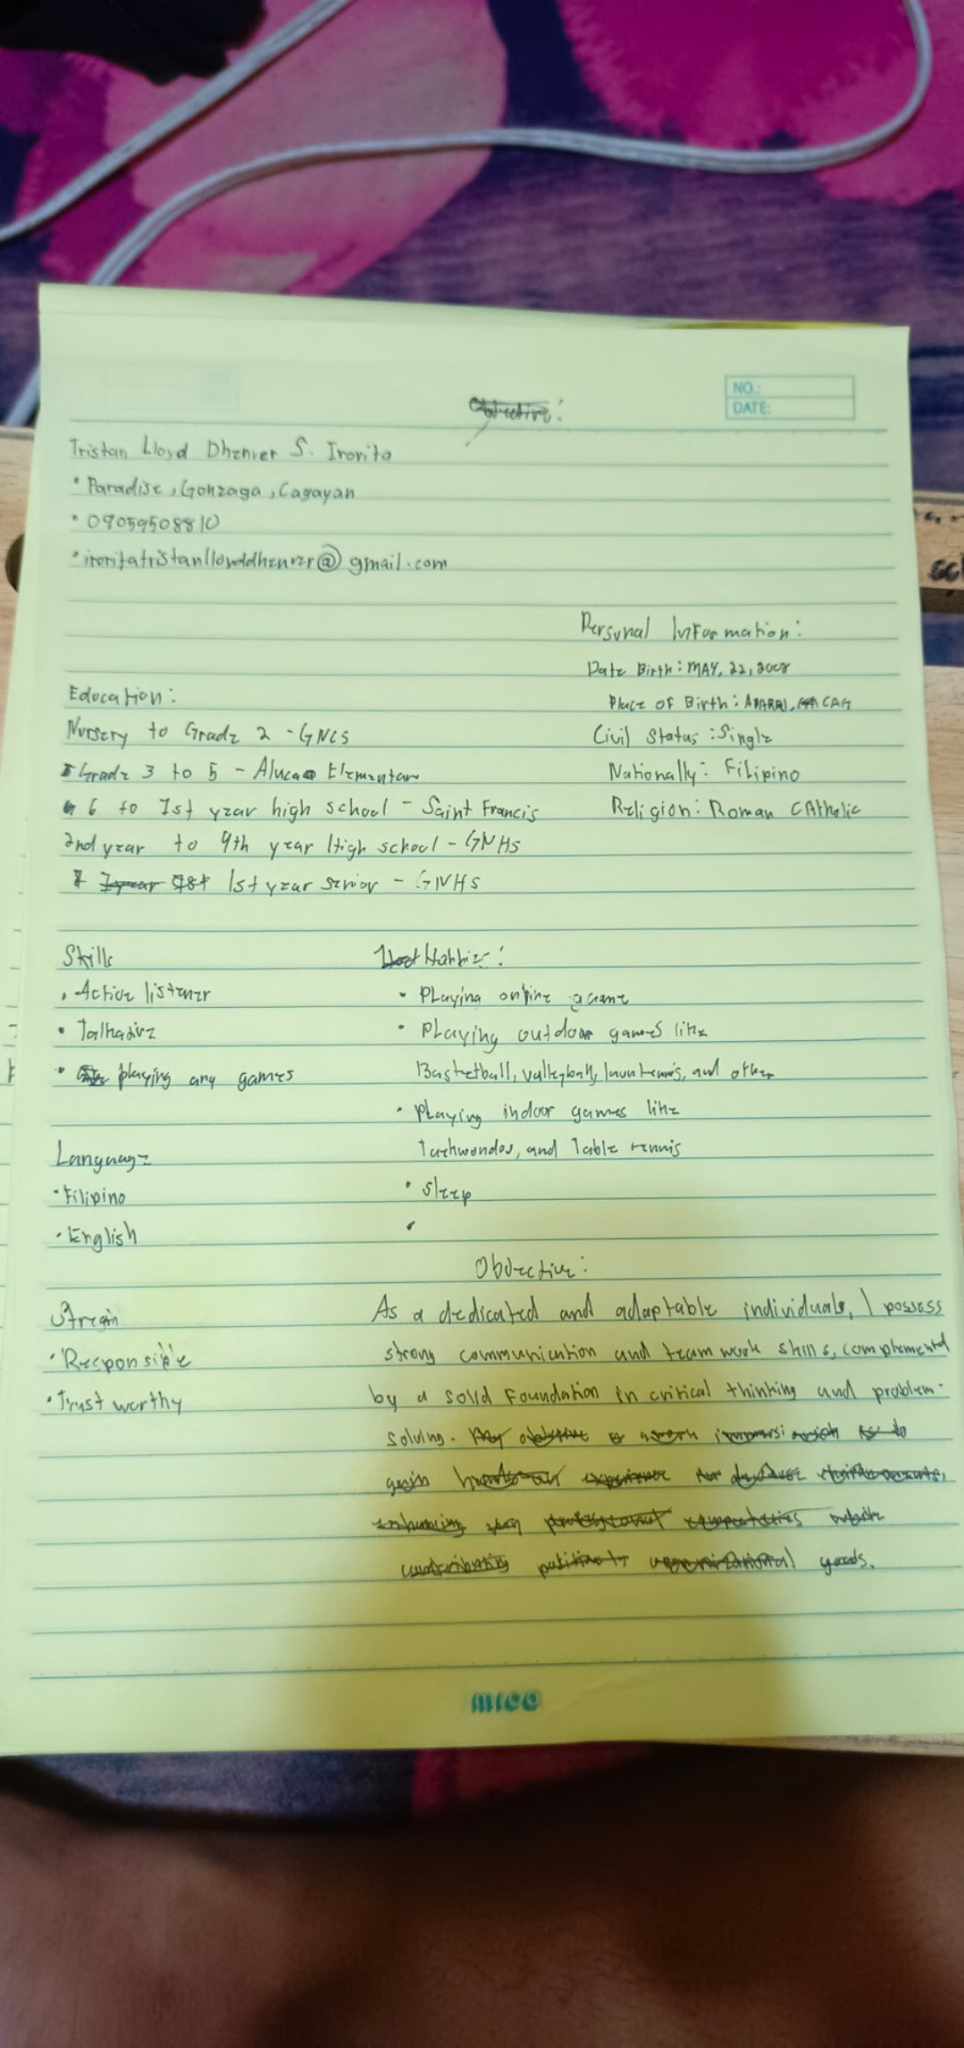 Objective:
NO.:
DATE:
Tristan Lloyd Dhenver S. Ironita
• Paradise, Gonzaga, Cagayan
• 09059508810
@gmail.com
Personal Information:
Date Birth: MAY, 22, 2008
Place of Birth: APARRI, CAG
Civil Status: Single
Nationally: Filipino
Religion: Roman CAtholic
Education:
Nursery to Grade 2 - GNCS
Grade 3 to 5 - Elementary
6 to 1st year high school - Saint Francis
2nd year to 9th year High school - GNHS
1st year senior - GNHS
Skills
• Active listener
• Talkative
• playing any games
Language
• Filipino
• English
Stregin
• Responsible
• Trust worthy
Hobbies:
• Playing online game
• Playing outdoor games like
Basketball, valleyball, lawn tennis, and other
• Playing indoor games like
Taekwondos, and Table tennis
• Sleep
•
Objective:
As a dedicated and adaptable individuals, I possess
strong communication and team work skills, complemented
by a solid Foundation in critical thinking and problem-
solving. My objective is to
gain experience for
enhancing professional
contributing organizational goods.
micc